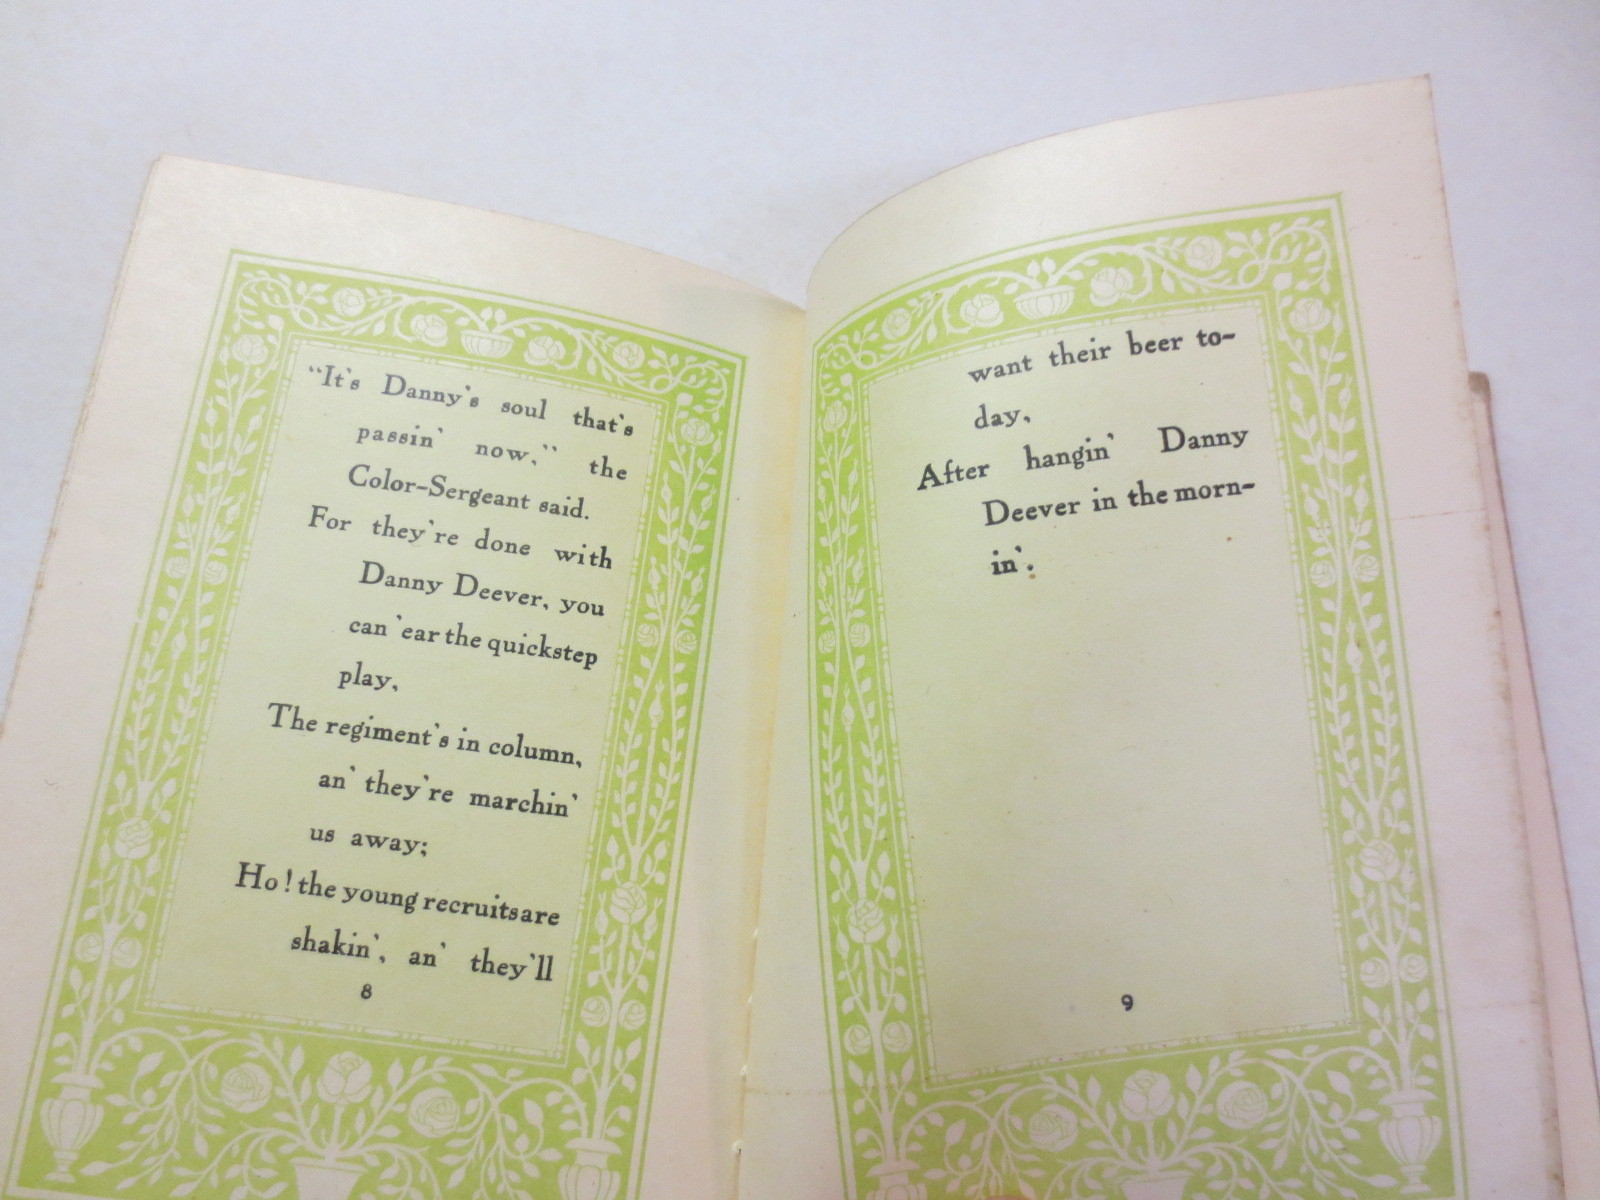 "It's Danny's soul that's
passin' now," the
Color-Sergeant said.
For they're done with
Danny Deever, you
can 'ear the quickstep
play,
The regiment's in column,
an' they're marchin'
us away;
Ho! the young recruits are
shakin', an' they'll
8
want their beer to-
day,
After hangin' Danny
Deever in the morn-
in'.
9